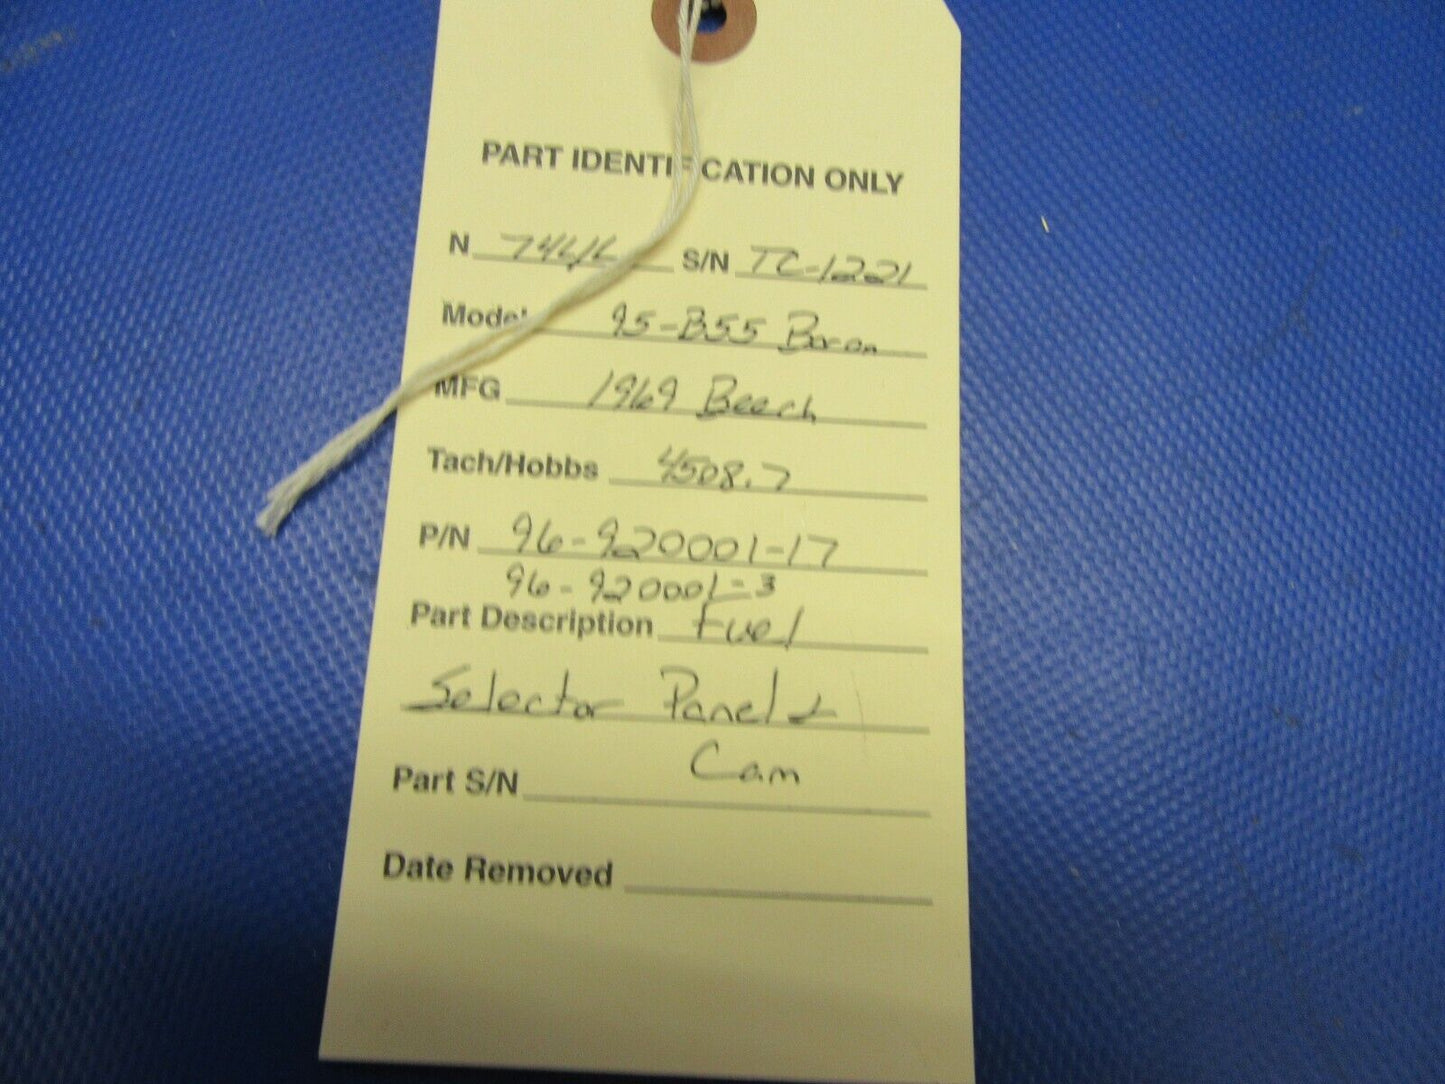 PART IDENTIFICATION ONLY
N S/N TC-1221
Model 95-B55 Baron
MFG 1969 Beech
Tach/Hobbs 4508.7
P/N 96-920001-17
96-920001-3
Part Description Fuel
Selector Panel &
Cam
Part S/N
Date Removed